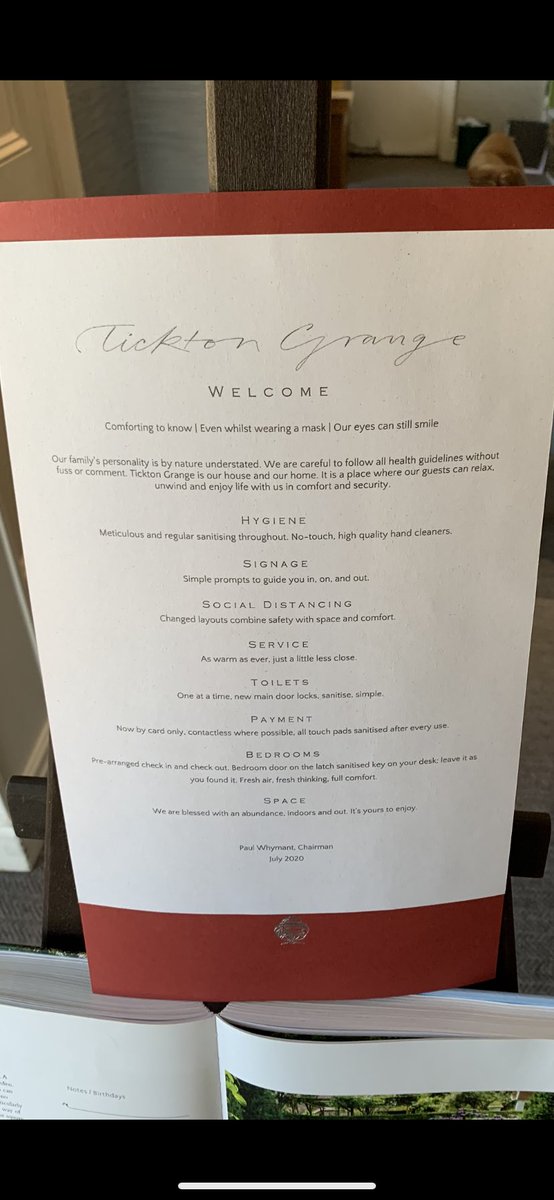 Tickton Grange
WELCOME
Comforting to know | Even whilst wearing a mask | Our eyes can still smile
Our family's personality is by nature understated. We are careful to follow all health guidelines without
fuss or comment. Tickton Grange is our house and our home. It is a place where our guests can relax,
unwind and enjoy life with us in comfort and security.
HYGIENE
Meticulous and regular sanitising throughout. No-touch, high quality hand cleaners.
SIGNAGE
Simple prompts to guide you in, on, and out.
SOCIAL DISTANCING
Changed layouts combine safety with space and comfort.
SERVICE
As warm as ever, just a little less close.
TOILETS
One at a time, new main door locks, sanitise, simple.
PAYMENT
Now by card only, contactless where possible, all touch pads sanitised after every use.
BEDROOMS
Pre-arranged check in and check out. Bedroom door on the latch sanitised key on your desk; leave it as
you found it. Fresh air, fresh thinking, full comfort.
SPACE
We are blessed with an abundance, indoors and out. It's yours to enjoy.
Paul Whymant, Chairman
July 2020
Notes / Birthdays
A
can
way of